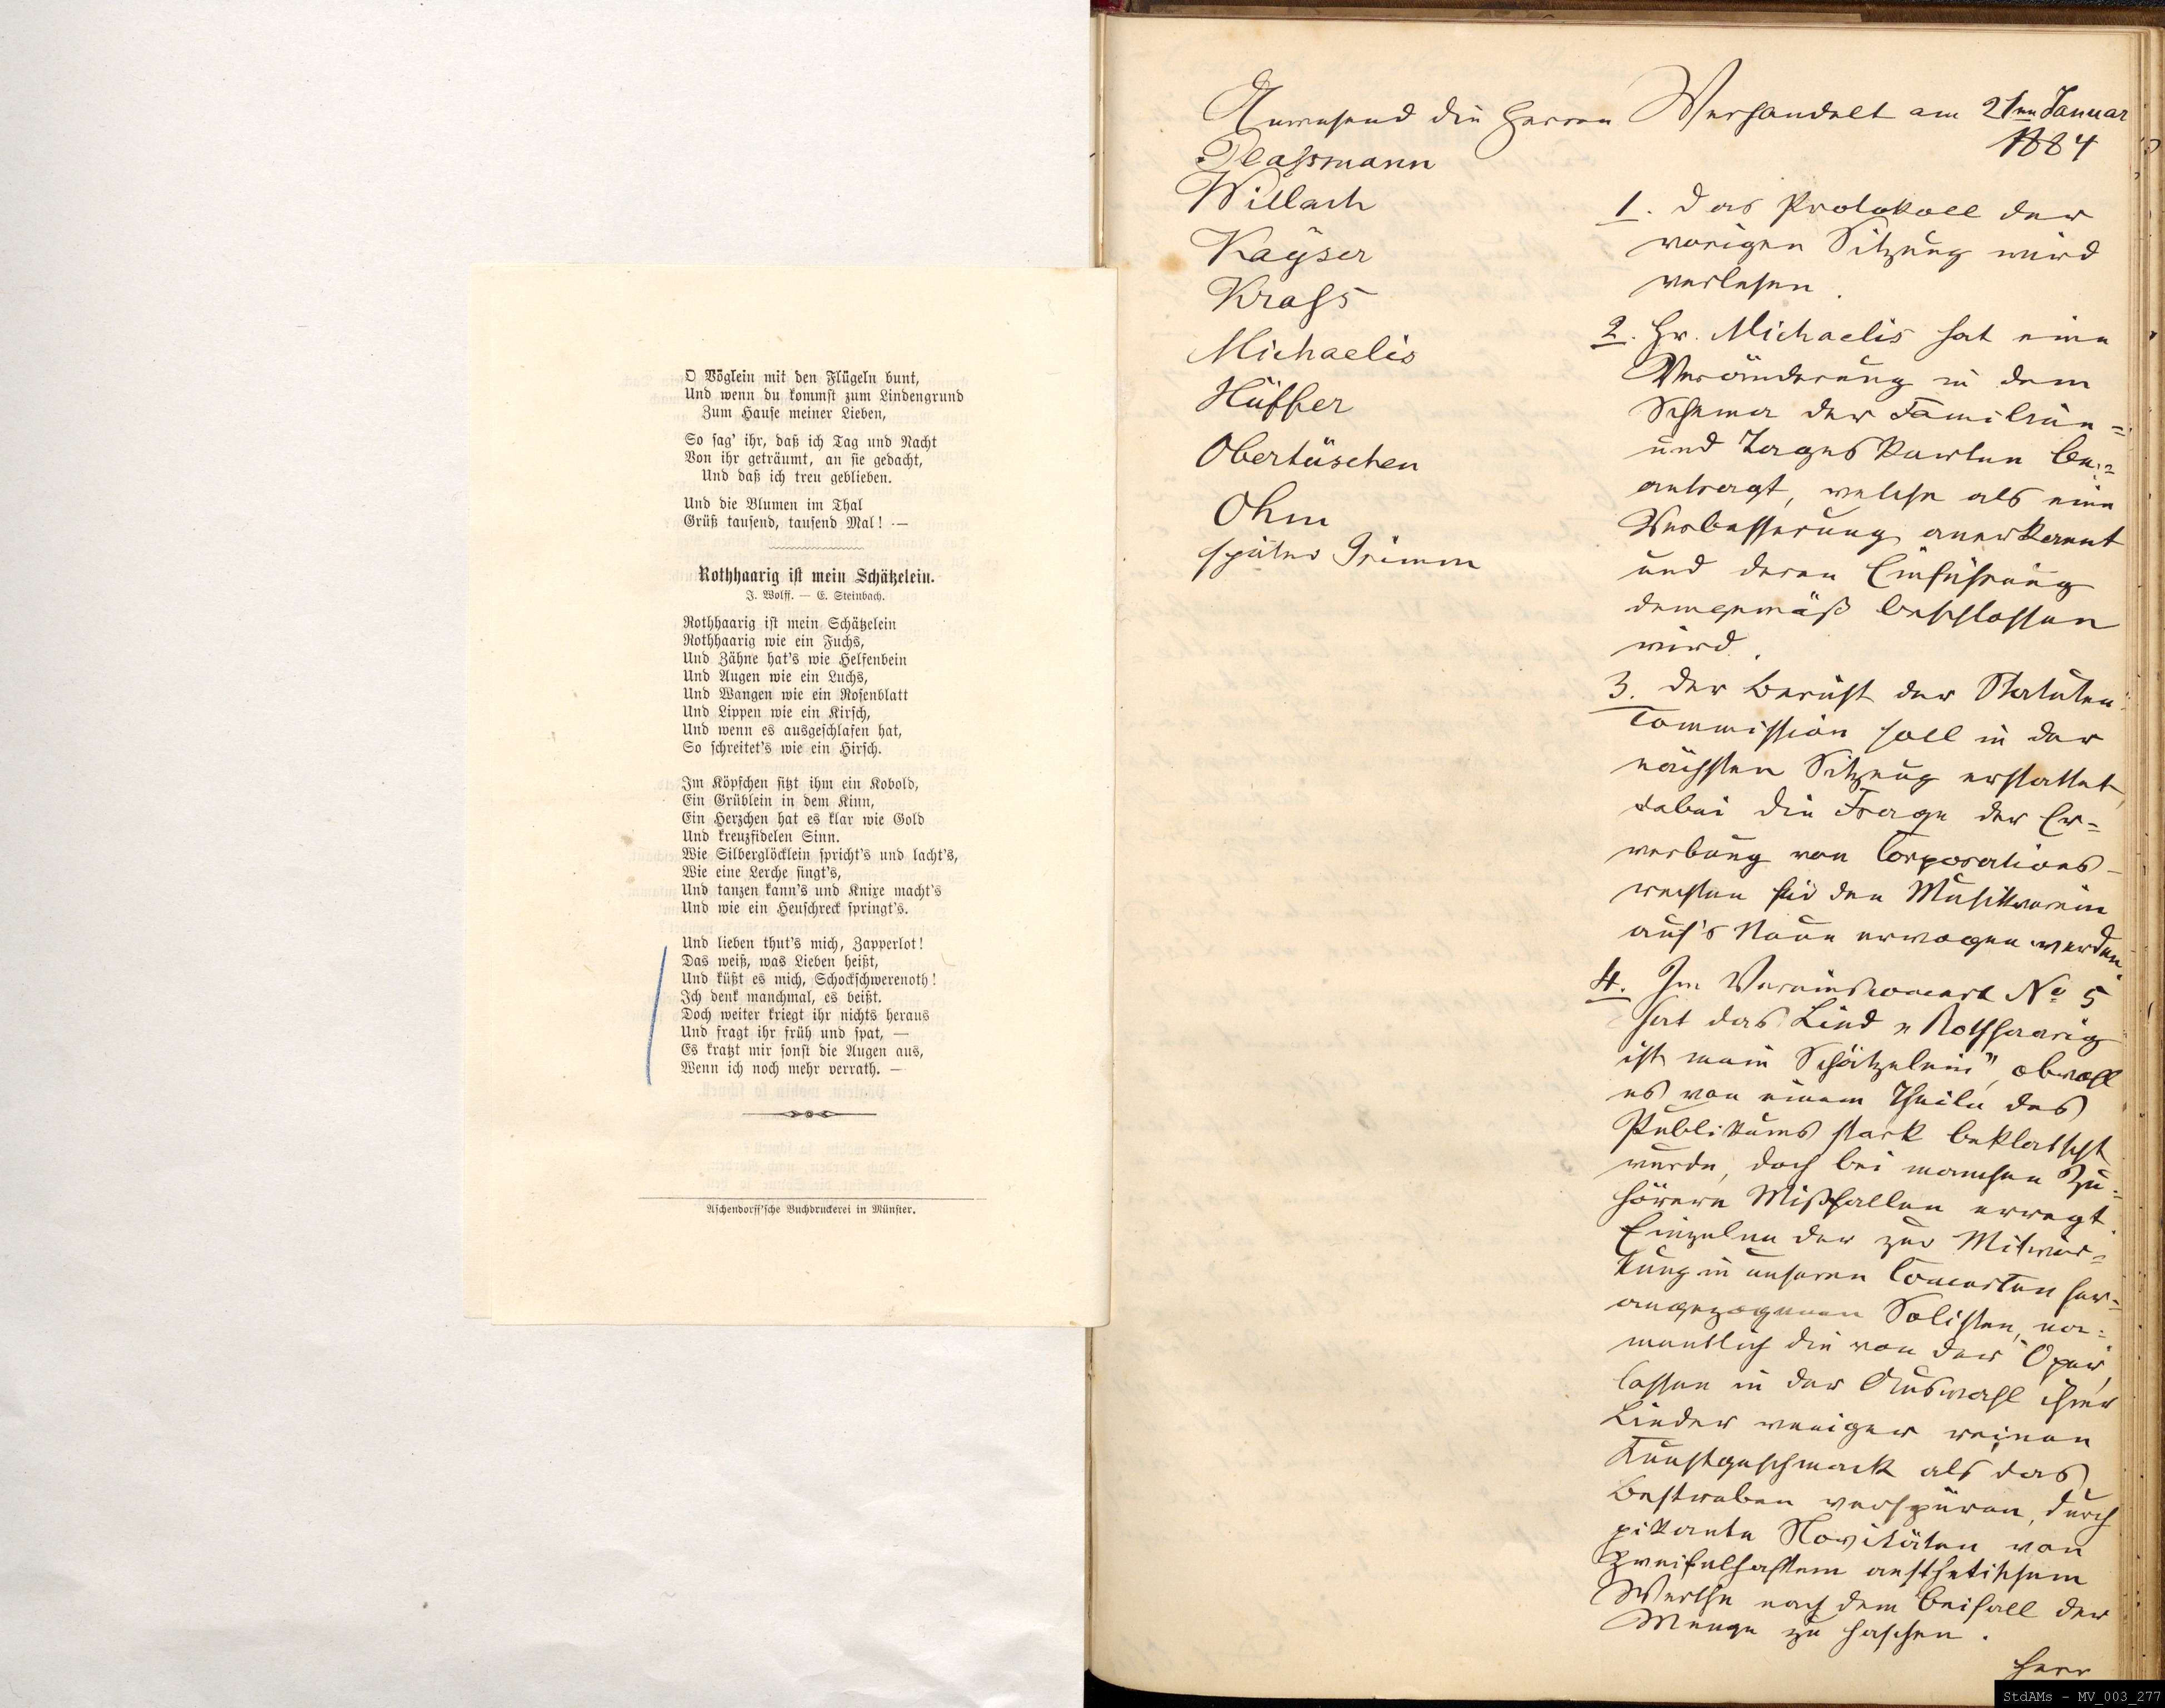 O Vöglein mit den Flügeln bunt,
Und wenn du kommst zum Lindengrund
Zum Hause meiner Lieben,
So sag' ihr, daß ich Tag und Nacht
Von ihr geträumt, an sie gedacht,
Und daß ich treu geblieben.
Und die Blumen im Thal
Grüß tausend, tausend Mal! —
Rothhaarig ist mein Schätzelein.
J. Wolff. — E. Steinbach.
Rothhaarig ist mein Schätzelein
Rothhaarig wie ein Fuchs,
Und Zähne hat's wie Helfenbein
Und Augen wie ein Luchs,
Und Wangen wie ein Rosenblatt
Und Lippen wie ein Kirsch,
Und wenn es ausgeschlafen hat,
So schreitet's wie ein Hirsch.
Im Köpfchen sitzt ihm ein Kobold,
Ein Grüblein in dem Kinn,
Ein Herzchen hat es klar wie Gold
Und kreuzfidelen Sinn.
Wie Silberglöcklein spricht's und lacht's,
Wie eine Lerche singt's,
Und tanzen kann's und Knixe macht's
Und wie ein Heuschreck springt's.
Und lieben thut's mich, Zapperlot!
Das weiß, was Lieben heißt,
Und küßt es mich, Schockschwerenoth!
Ich denk manchmal, es beißt.
Doch weiter kriegt ihr nichts heraus
Und fragt ihr früh und spat, —
Es kratzt mir sonst die Augen aus,
Wenn ich noch mehr verrath. —
Aschendorff'sche Buchdruckerei in Münster.
Anwesend die Herren
Plassmann
Willach
Kayser
Krass
Michaelis
Hüffer
Obertüschen
Ohm
später Grimm
Verhandelt am 21ten Januar
1884
1. Das Protokoll der
vorigen Sitzung wird
verlesen.
2. Hr. Michaelis hat eine
Veränderung in dem
Schema der Familien=
und Tageskarten be=
antragt, welche als eine
Verbesserung anerkannt
und deren Einführung
demgemäß beschlossen
wird.
3. Der Bericht der Statuten
Commission soll in der
nächsten Sitzung erstattet,
dabei die Frage der Er=
werbung von Corporations-
rechten für den Musikverein
auf's Neue erwogen werden.
4. Im Vereinsconcert No 5
hat das Lied "Rothhaarig
ist mein Schätzelein", obwohl
es von einem Theile des
Publikums stark beklatscht
wurde, doch bei manchen Zu=
hörern Mißfallen erregt.
Einzelne der zur Mitwir=
kung in unseren Concerten her=
angezogenen Solisten, na=
mentlich die von der Oper,
lassen in der Auswahl ihrer
Lieder weniger reinen
Kunstgeschmack als das
Bestreben verspüren, durch
pikante Novitäten von
zweifelhaftem aesthetischem
Werthe nach dem Beifall der
Menge zu haschen.
Herr
StdAMs - MV_003_277